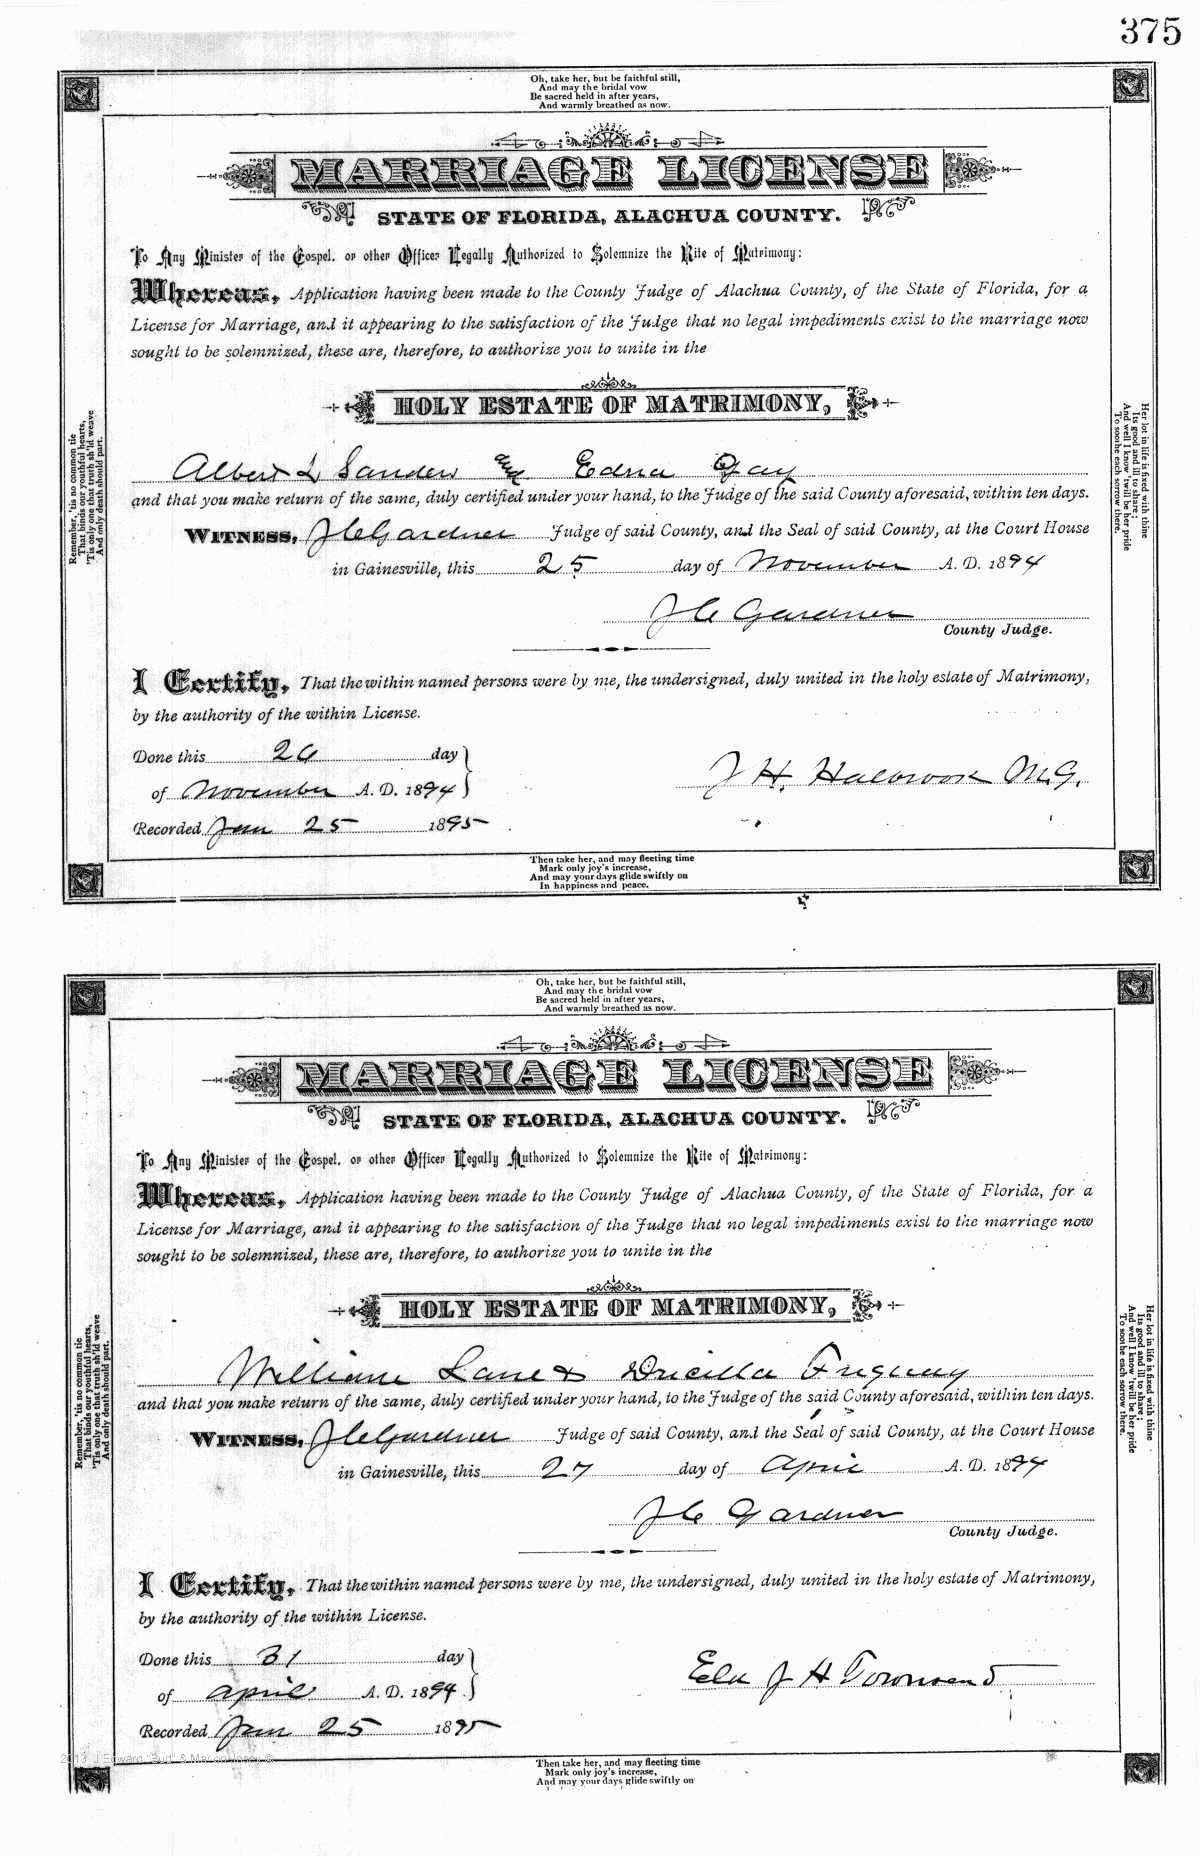 375
Oh, take her, but be faithful still,
And may the bridal vow
Be sacred held in after years,
And warmly breathed as now.
MARRIAGE LICENSE
STATE OF FLORIDA, ALACHUA COUNTY.
To Any Minister of the Gospel, or other Officer Legally Authorized to Solemnize the Rite of Matrimony:
Whereas, Application having been made to the County Judge of Alachua County, of the State of Florida, for a
License for Marriage, and it appearing to the satisfaction of the Judge that no legal impediments exist to the marriage now
sought to be solemnized, these are, therefore, to authorize you to unite in the
HOLY ESTATE OF MATRIMONY,
Albert L Sanders and Edna Gay
and that you make return of the same, duly certified under your hand, to the Judge of the said County aforesaid, within ten days.
WITNESS, J C Gardner Judge of said County, and the Seal of said County, at the Court House
in Gainesville, this 25 day of November A. D. 1894
J C Gardner
County Judge.
I Certify, That the within named persons were by me, the undersigned, duly united in the holy estate of Matrimony,
by the authority of the within License.
Done this 26 day
of November A. D. 1894
J H. Holbrook M.G.
Recorded Jan 25 1895
Remember, 'tis no common tie
That binds our youthful hearts,
'Tis only one that truth sh'ld weave
And only death should part.
Her lot in life is fixed with thine
Its good and ill to share;
And well I know 'twill be her pride
To soothe each sorrow there.
Then take her, and may fleeting time
Mark only joy's increase,
And may your days glide swiftly on
In happiness and peace.
Oh, take her, but be faithful still,
And may the bridal vow
Be sacred held in after years,
And warmly breathed as now.
MARRIAGE LICENSE
STATE OF FLORIDA, ALACHUA COUNTY.
To Any Minister of the Gospel, or other Officer Legally Authorized to Solemnize the Rite of Matrimony:
Whereas, Application having been made to the County Judge of Alachua County, of the State of Florida, for a
License for Marriage, and it appearing to the satisfaction of the Judge that no legal impediments exist to the marriage now
sought to be solemnized, these are, therefore, to authorize you to unite in the
HOLY ESTATE OF MATRIMONY,
William Lane & Dricilla
and that you make return of the same, duly certified under your hand, to the Judge of the said County aforesaid, within ten days.
WITNESS, J C Gardner Judge of said County, and the Seal of said County, at the Court House
in Gainesville, this 27 day of April A. D. 1894
J C Gardner
County Judge.
I Certify, That the within named persons were by me, the undersigned, duly united in the holy estate of Matrimony,
by the authority of the within License.
Done this 31 day
of April A. D. 1894
Eld J H Townsend
Recorded Jan 25 1895
Remember, 'tis no common tie
That binds our youthful hearts,
'Tis only one that truth sh'ld weave
And only death should part.
Her lot in life is fixed with thine
Its good and ill to share;
And well I know 'twill be her pride
To soothe each sorrow there.
Then take her, and may fleeting time
Mark only joy's increase,
And may your days glide swiftly on